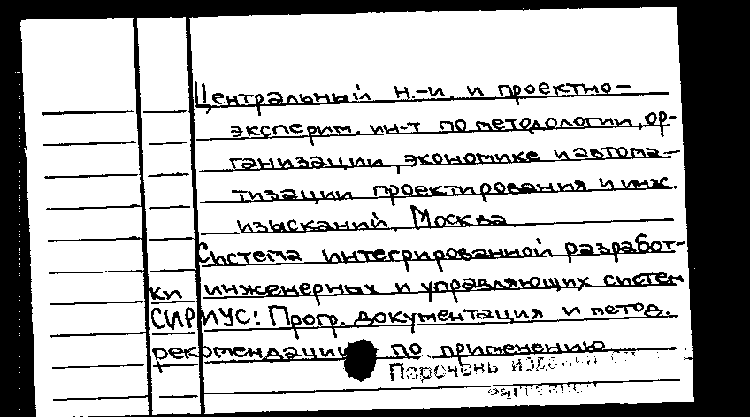 Центральный н.-и. и проектно-
эксперим. ин-т по методологии, ор-
ганизации, экономике и автома-
тизации проектирования и инж.
изысканий. Москва
Система интегрированной разработ-
ки инженерных и управляющих систем
СИРИУС: Прогр. документация и метод.
рекомендации по применению
Перечень изделий